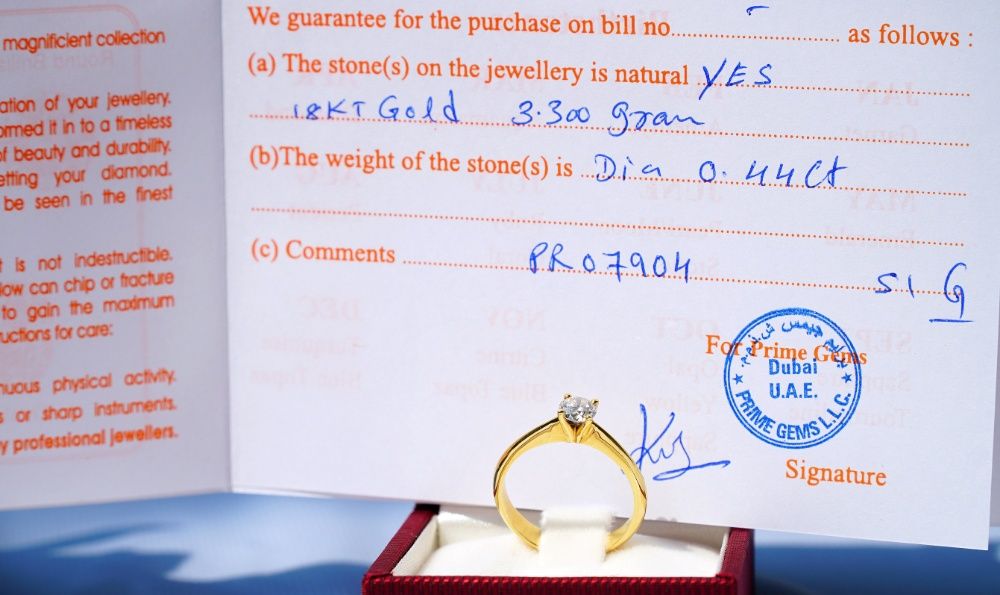 magnificient collection
ation of your jewellery.
ormed it in to a timeless
of beauty and durability.
etting your diamond.
be seen in the finest
t is not indestructible.
low can chip or fracture
to gain the maximum
uctions for care:
nuous physical activity.
s or sharp instruments.
y professional jewellers.
We guarantee for the purchase on bill no. as follows :
(a) The stone(s) on the jewellery is natural YES
18KT Gold 3.300 gram
(b)The weight of the stone(s) is Dia 0.44 Ct
(c) Comments PR07904 SI G
For Prime Gems
Dubai
U.A.E.
PRIME GEMS L.L.C.
Signature